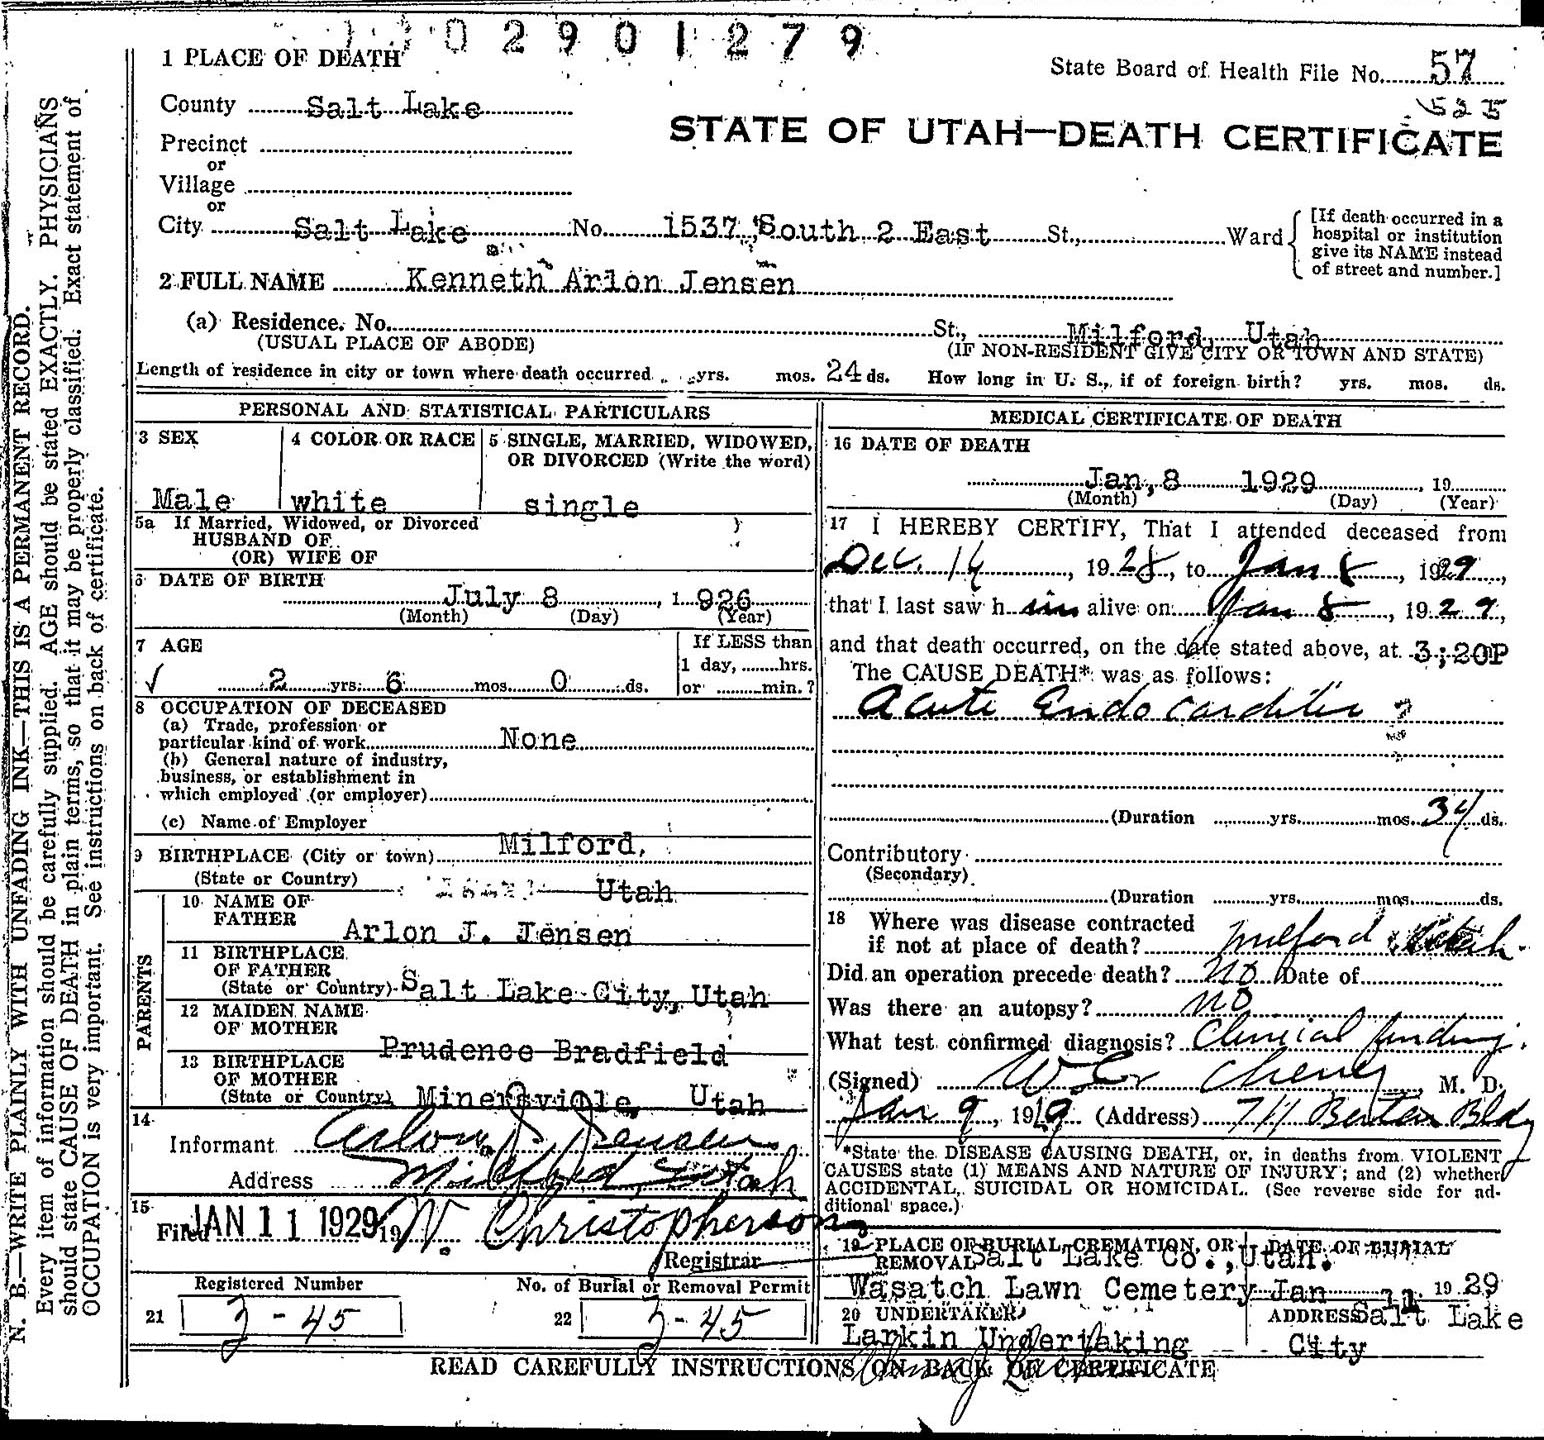 02901279
1 PLACE OF DEATH
State Board of Health File No. 57
525
County Salt Lake
STATE OF UTAH—DEATH CERTIFICATE
Precinct
or
Village
or
City Salt Lake No. 1537 South 2 East St., Ward
[If death occurred in a hospital or institution give its NAME instead of street and number.]
2 FULL NAME Kenneth Arlon Jensen
(a) Residence. No. St., Milford, Utah
(USUAL PLACE OF ABODE) (IF NON-RESIDENT GIVE CITY OR TOWN AND STATE)
Length of residence in city or town where death occurred yrs. mos. 24 ds. How long in U. S., if of foreign birth? yrs. mos. ds.
PERSONAL AND STATISTICAL PARTICULARS
3 SEX 4 COLOR OR RACE 5 SINGLE, MARRIED, WIDOWED,
OR DIVORCED (Write the word)
Male white single
5a If Married, Widowed, or Divorced
HUSBAND OF
(OR) WIFE OF
6 DATE OF BIRTH
July 8, 1926
(Month) (Day) (Year)
7 AGE If LESS than
1 day, hrs.
2 yrs. 6 mos. 0 ds. or min.?
8 OCCUPATION OF DECEASED
(a) Trade, profession or
particular kind of work None
(b) General nature of industry,
business, or establishment in
which employed (or employer)
(c) Name of Employer
9 BIRTHPLACE (City or town) Milford,
(State or Country) Utah
PARENTS
10 NAME OF
FATHER Arlon J. Jensen
11 BIRTHPLACE
OF FATHER
(State or Country) Salt Lake City, Utah
12 MAIDEN NAME
OF MOTHER Prudence Bradfield
13 BIRTHPLACE
OF MOTHER
(State or Country) Minersville, Utah
14
Informant Arlon J. Jensen
Address Milford, Utah
15
Filed JAN 11 1929 19 W. Christopherson
Registrar
Registered Number No. of Burial or Removal Permit
21 3-45 22 3-45
MEDICAL CERTIFICATE OF DEATH
16 DATE OF DEATH
Jan, 8 1929, 19
(Month) (Day) (Year)
17 I HEREBY CERTIFY, That I attended deceased from
Dec. 14, 1928, to Jan 8, 1929,
that I last saw him alive on Jan 8, 1929,
and that death occurred, on the date stated above, at 3;20P
The CAUSE DEATH* was as follows:
Acute Endocarditis
(Duration yrs. mos. 34 ds.
Contributory
(Secondary)
(Duration yrs. mos. ds.
18 Where was disease contracted
if not at place of death? Milford Utah.
Did an operation precede death? No Date of
Was there an autopsy? No
What test confirmed diagnosis? Clinical finding.
(Signed) Cheney, M. D.
Jan 9, 1929 (Address) 711 Bldg
*State the DISEASE CAUSING DEATH, or, in deaths from VIOLENT
CAUSES state (1) MEANS AND NATURE OF INJURY; and (2) whether
ACCIDENTAL, SUICIDAL OR HOMICIDAL. (See reverse side for ad-
ditional space.)
19 PLACE OF BURIAL, CREMATION, OR DATE OF BURIAL
REMOVAL Salt Lake Co., Utah.
Wasatch Lawn Cemetery Jan 11 1929
20 UNDERTAKER ADDRESS Salt Lake
Larkin Undertaking City
READ CAREFULLY INSTRUCTIONS ON BACK OF CERTIFICATE
N. B.—WRITE PLAINLY WITH UNFADING INK—THIS IS A PERMANENT RECORD.
Every item of information should be carefully supplied. AGE should be stated EXACTLY. PHYSICIANS
should state CAUSE OF DEATH in plain terms, so that it may be properly classified. Exact statement of
OCCUPATION is very important. See instructions on back of certificate.